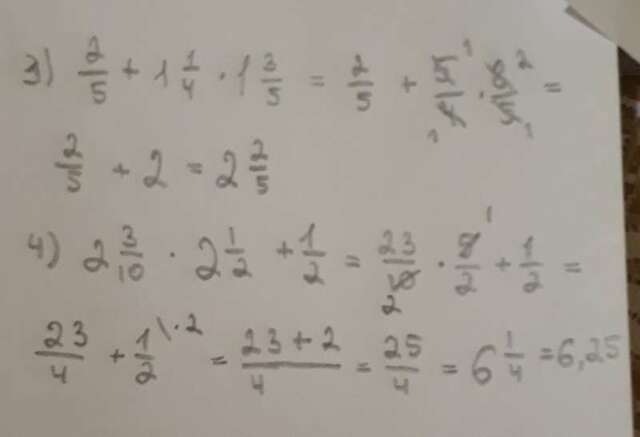 3) 2/5 + 1 1/4 · 1 3/5 = 2/5 + 5/4 · 8/5 =
2/5 + 2 = 2 2/5
4) 2 3/10 · 2 1/2 + 1/2 = 23/10 · 5/2 + 1/2 =
23/4 + 1/2 \·2 = 23+2/4 = 25/4 = 6 1/4 = 6,25